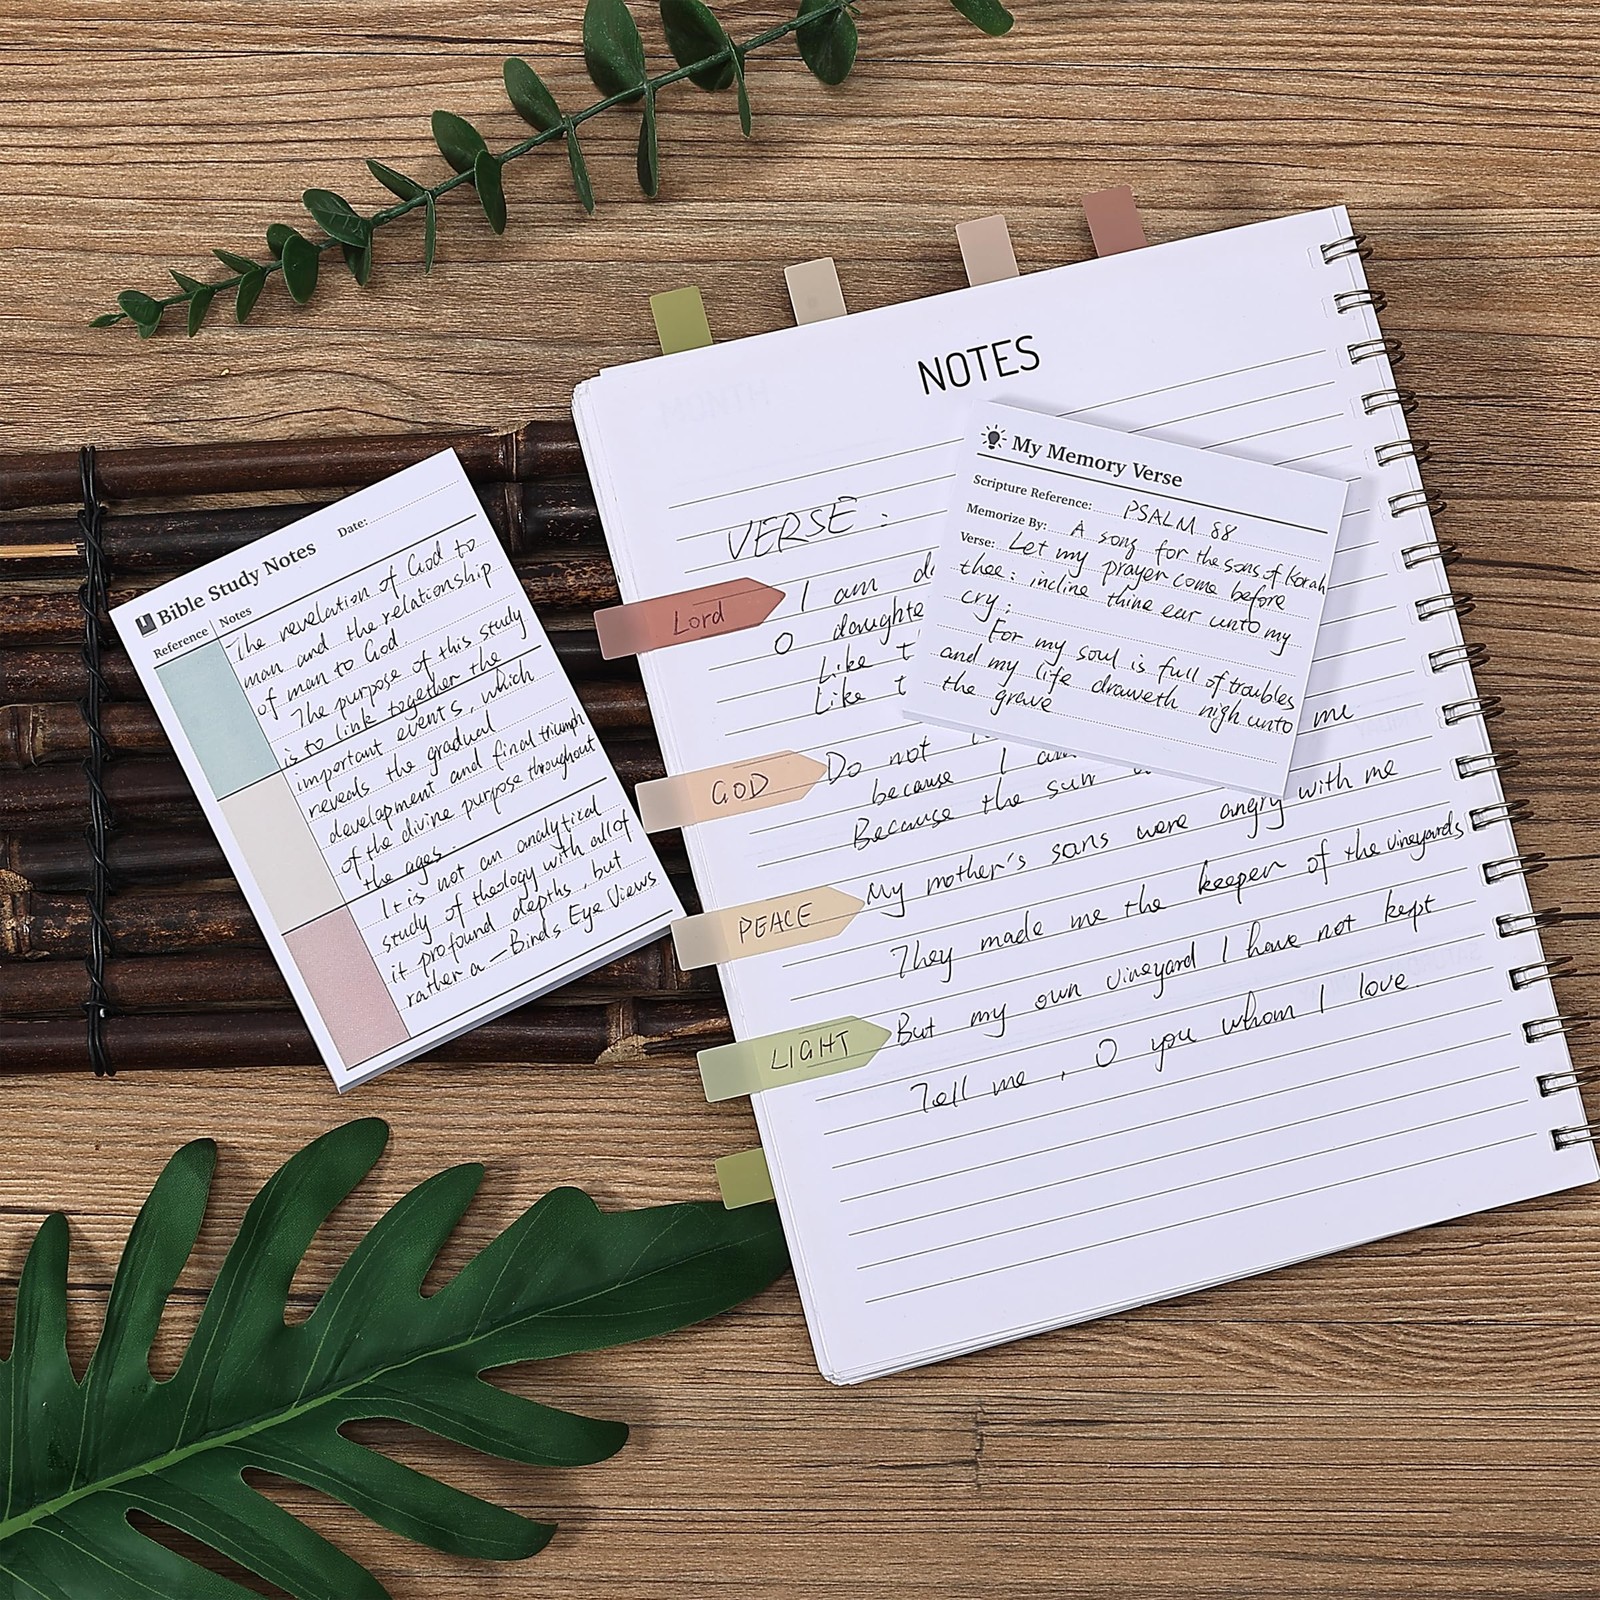 Bible Study Notes
Date:
Reference
Notes
The revelation of God to
man and the relationship
of man to God.
The purpose of this study
is to link together the
important events, which
reveals the gradual
development and final triumph
of the divine purpose throughout
the ages.
It is not an analytical
study of theology with all of
it profound depths, but
rather a - Birds Eye Views
NOTES
VERSE :
I am
O daughte
Like t
Like t
me
Do not
because I am
Because the sun
My mother's sons were angry with me
They made me the keeper of the vineyards
But my own vineyard I have not kept
Tell me, O you whom I love.
Lord
GOD
PEACE
LIGHT
My Memory Verse
Scripture Reference: PSALM 88
Memorize By: A song for the sons of Korah
Verse: Let my prayer come before
thee: incline thine ear unto my
cry:
For my soul is full of troubles
and my life draweth nigh unto
the grave